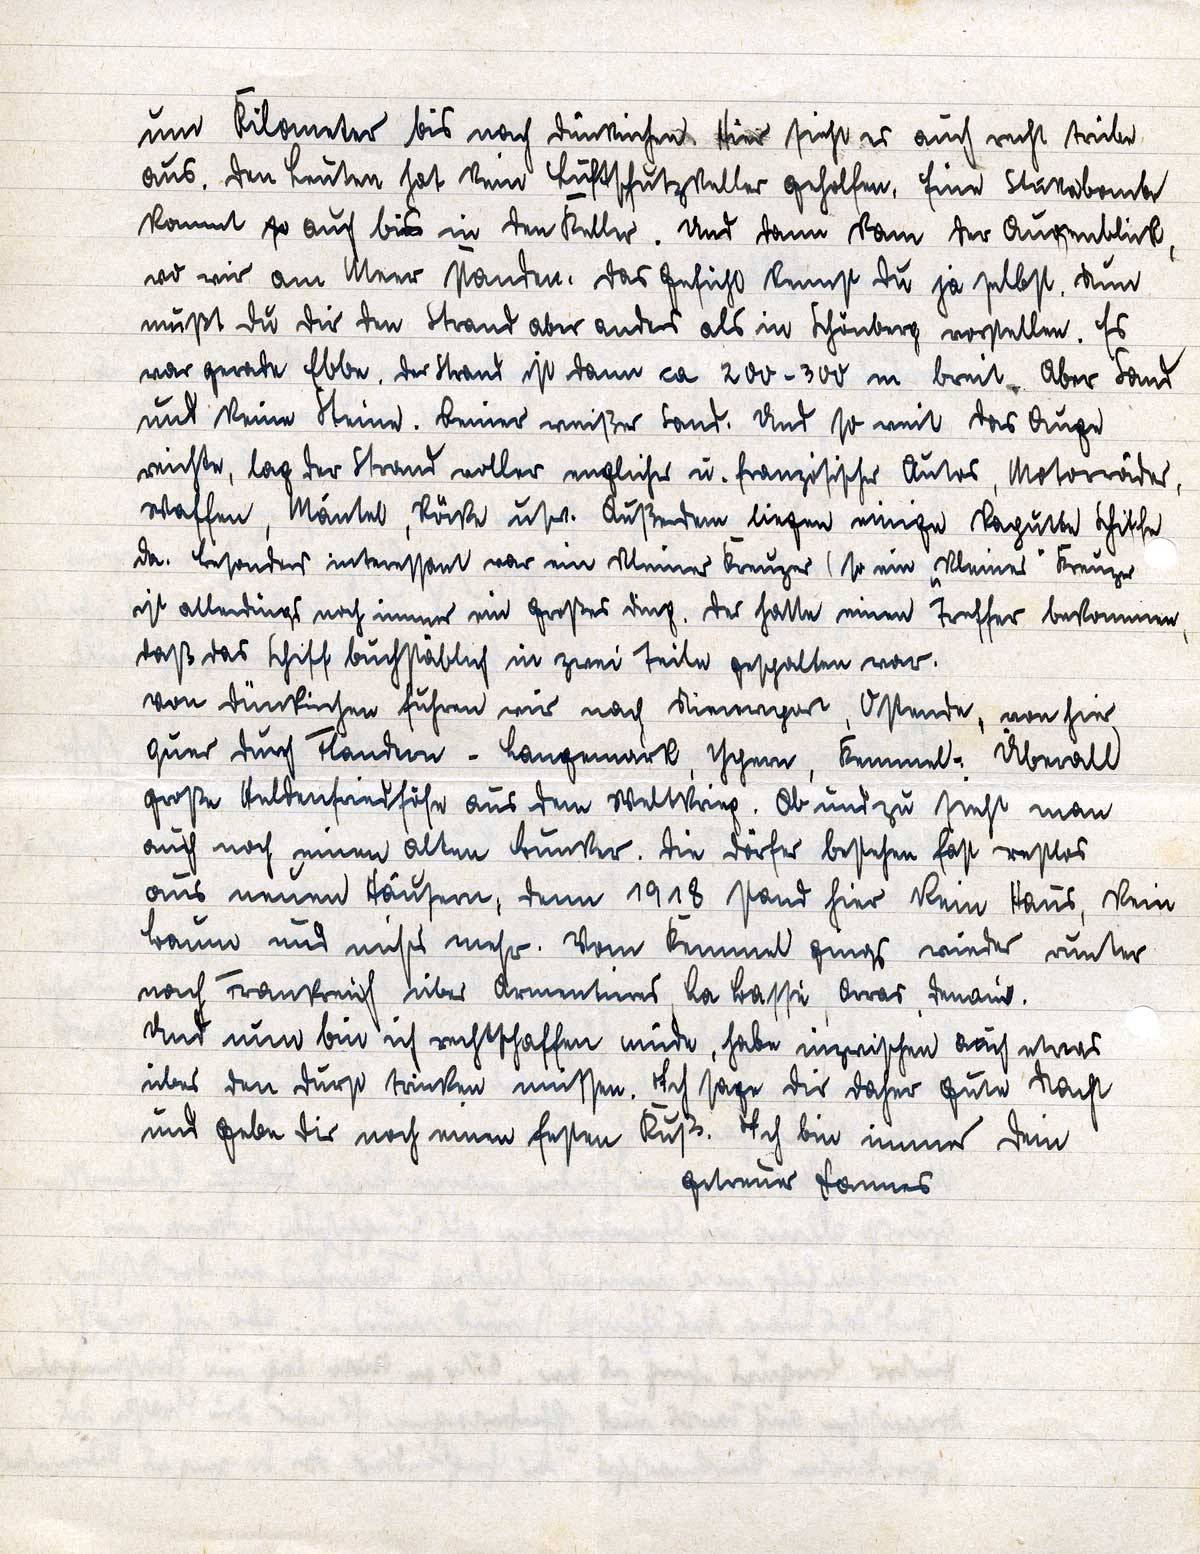 um Kilometer bis nach Dünkirchen. Hier sieht es auch recht trübe
aus. Den Leuten hat kein Luftschutzkeller geholfen. Eine Stukabombe
kommt so auch bis in den Keller. Und dann kam der Augenblick,
wo wir am Meer standen. Das Gesicht kennst Du ja selbst. Nun
mußt Du Dir den Strand aber anders als in Schönberg vorstellen. Es
war gerade Ebbe. Der Strand ist dann ca 200-300 m breit. Aber Sand
und keine Steine. Reiner weißer Sand. Und so weit das Auge
reichte, lag der Strand voller englischer u. französischer Autos, Motorräder,
Waffen, Mäntel, Röcke usw. Außerdem liegen einige kaputte Schiffe
da. Besonders interessant war ein kleiner Kreuzer (so ein „kleiner" Kreuzer
ist allerdings noch immer ein großes Ding. Der hatte einen Treffer bekommen,
daß das Schiff buchstäblich in zwei Teile gespalten war.
Von Dünkirchen fuhren wir nach Nieuwport, Ostende, von hier
quer durch Flandern - Langemark, Ypern, Kemmel-. Überall
große Heldenfriedhöfe aus dem Weltkrieg. Ab und zu sieht man
auch noch einen alten Bunker. Die Dörfer bestehen fast restlos
aus neuen Häusern, denn 1918 stand hier kein Haus, kein
Baum und nichts mehr. Vom Kemmel gings wieder runter
nach Frankreich über Armentieres, La Bassé, Arras, Denain.
Und nun bin ich rechtschaffen müde, habe inzwischen auch etwas
über den Durst trinken müssen. Ich sage Dir daher gute Nacht
und gebe Dir noch einen festen Kuß. Ich bin immer Dein
getreuer Hannes